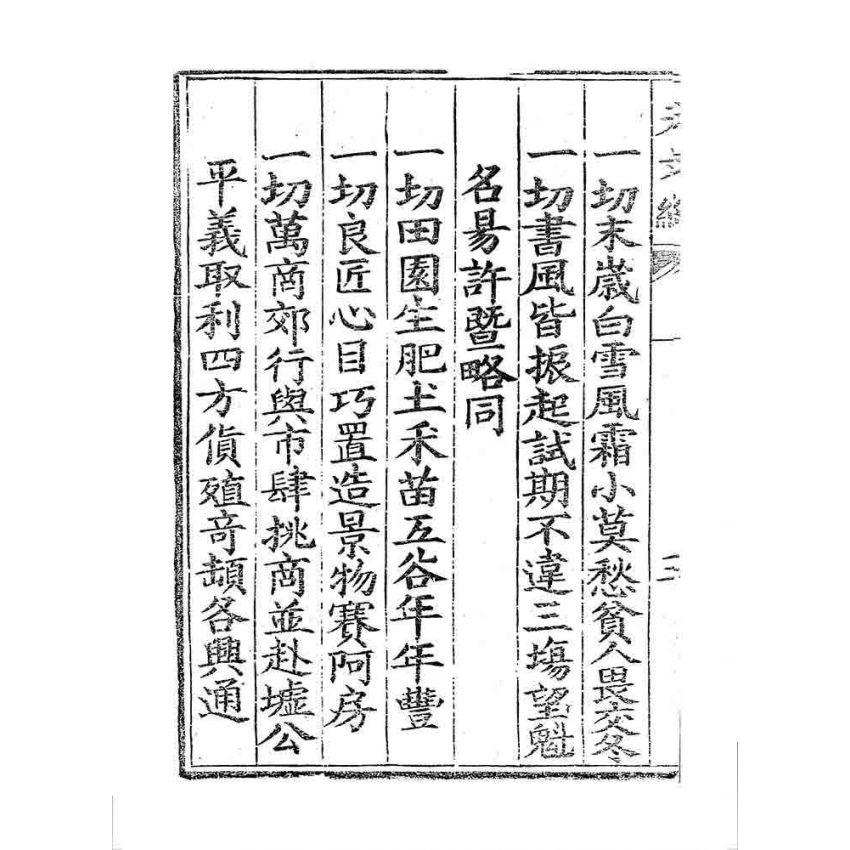 一切末歳白雪風霜小莫愁貧人畏交冬
一切書風皆振起試期不違三塲望魁
名昜許暨略同
一切田園生肥土禾苗五谷年年豐
一切良匠心目巧置造景物賽阿房
一切萬商郊行與市肆挑商並赴墟公
平義取利四方貨殖竒頡各興通